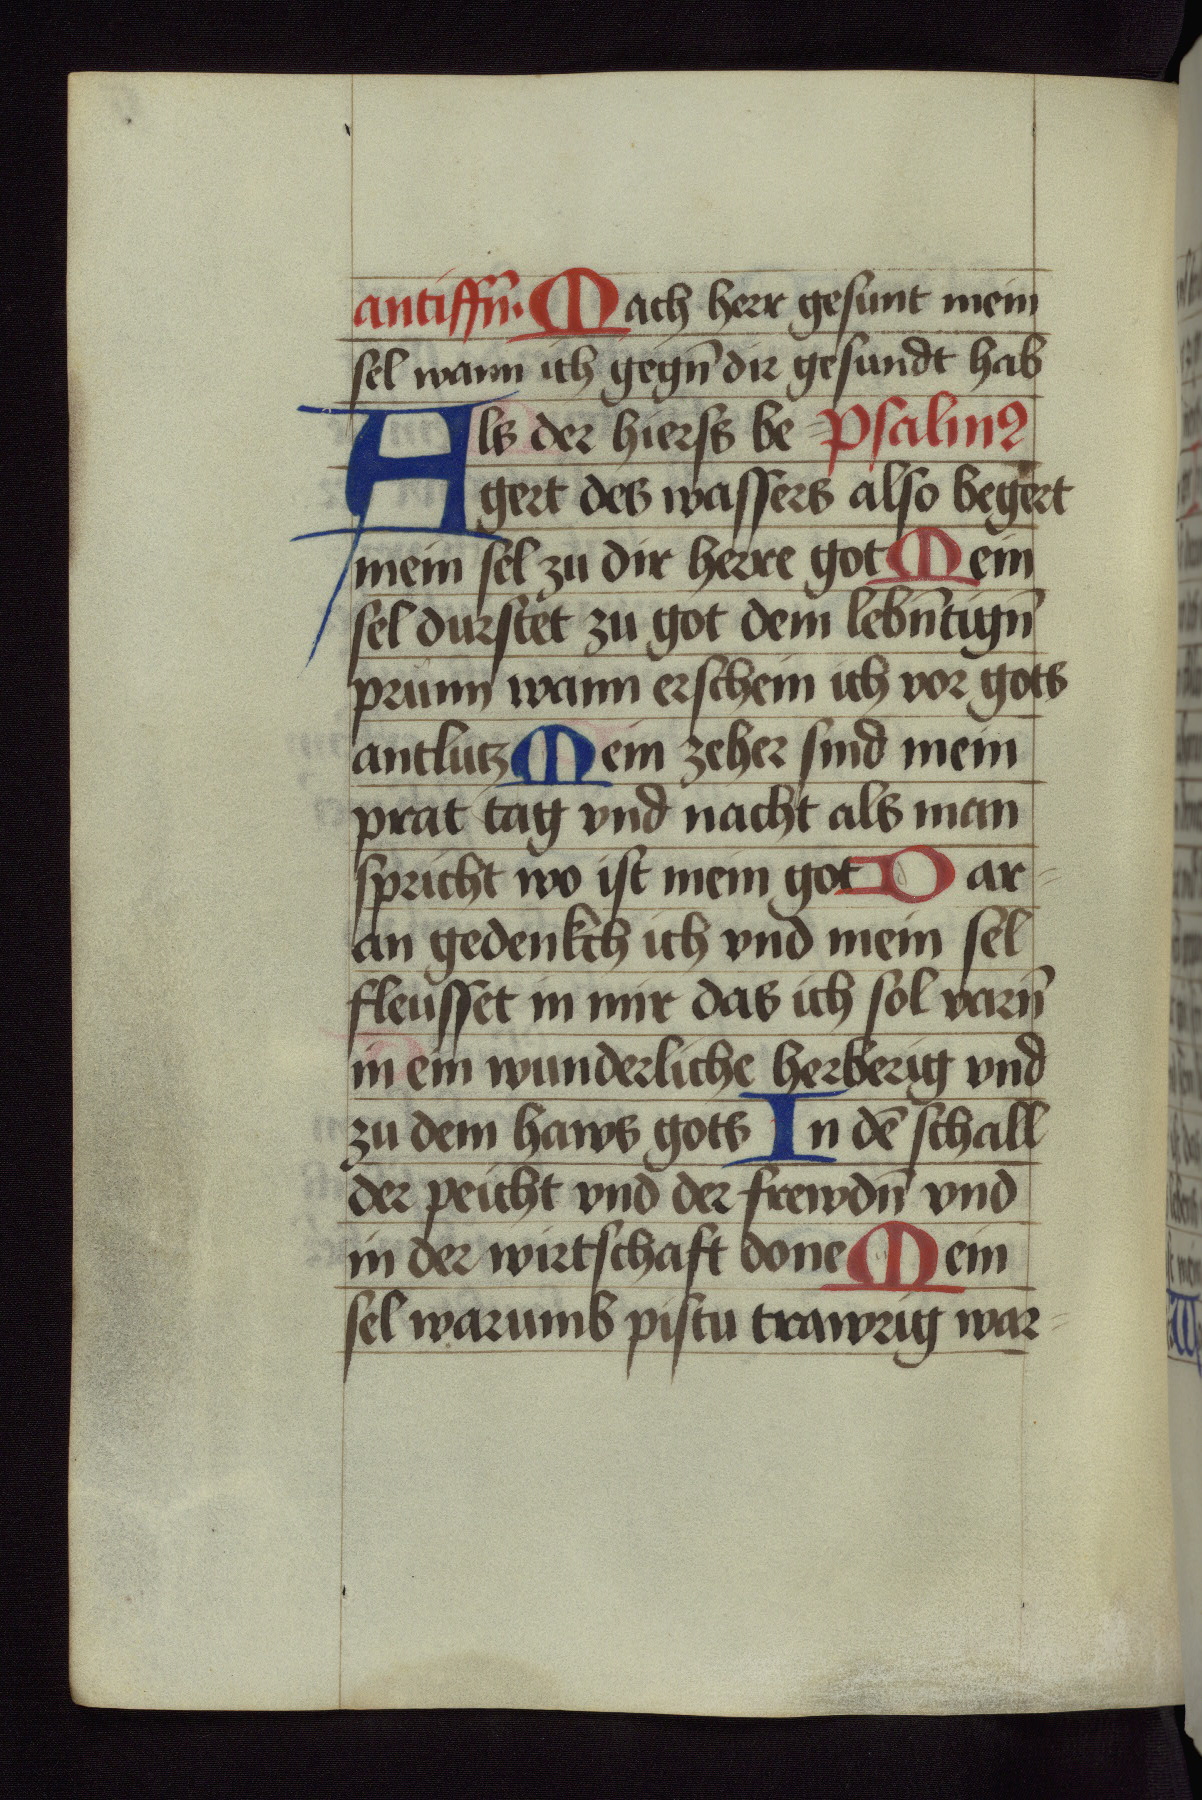 antiffn̄. Mach herr gesunt mein
sel wann ich gegn̄ dir gesundt hab
Als der hierss be= Psalmꝰ
gert des wassers also begert
mein sel zu dir herre got Mein
sel durstet zu got dem lebn̄tign̄
prunn wann erschein ich vor gots
antlutz Mein zeher sind mein
prat tag vnd nacht als man
spricht wo ist mein got Dar=
an gedenkch ich vnd mein sel
fleusset in mir das ich sol varn̄
in ein wunderliche herberig vnd
zu dem haws gots In dē schall
der peicht vnd der frewdn̄ vnd
in der wirtschaft done Mein
sel warumb pistu trawrig war=